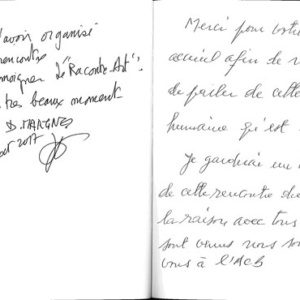 avoir organisé
rencontre
"Raconte-Art"!
très beaux moment
D. MANGNE
2017
Merci pour votre
accueil afin de
de parler de cette
humaine qu'est
Je garderai un
de cette rencontre
la raison avec tous
sont venus nous
vous à l'ACB